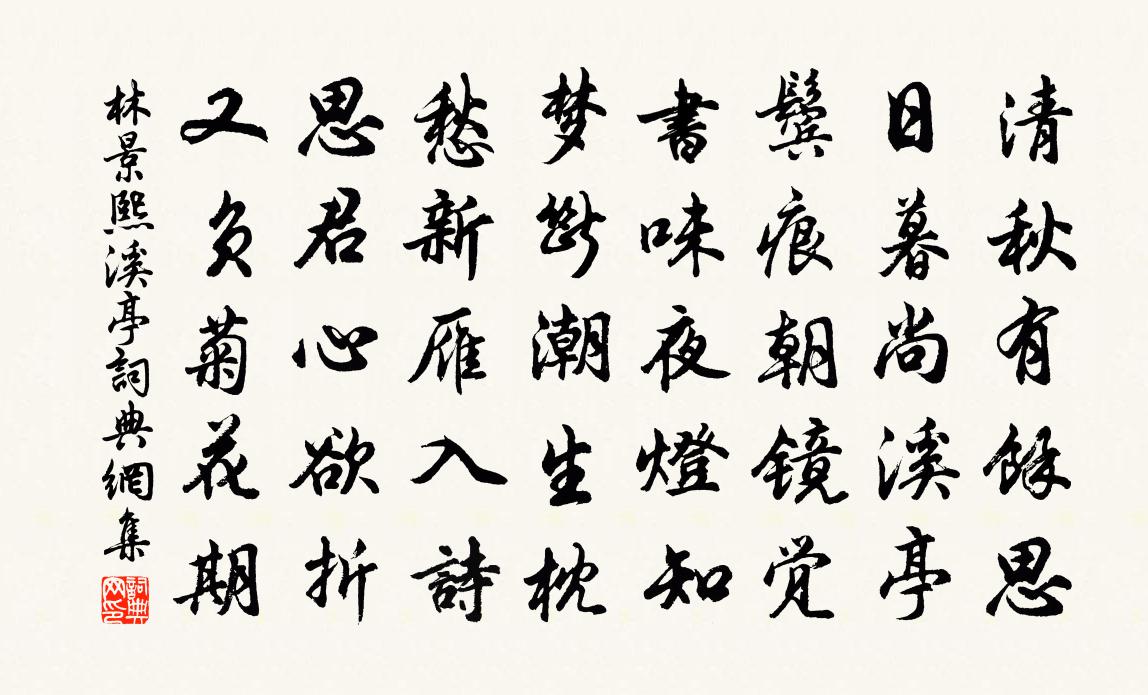 清秋有餘思
日暮尚溪亭
鬢痕朝镜觉
書味夜燈知
梦断潮生枕
愁新雁入詩
思君心欲折
又负菊花期
林景熙溪亭詞典網集
詞典網印